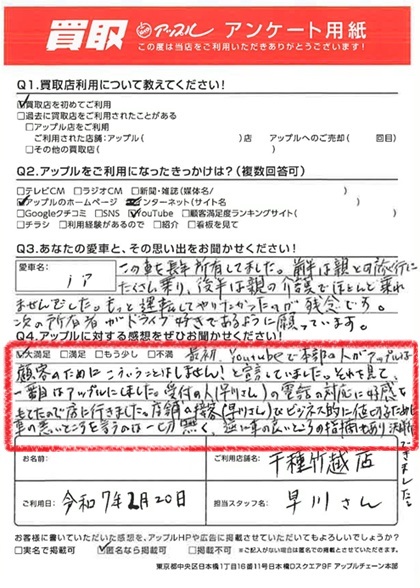 買取 アップル アンケート用紙
この度は当店をご利用いただきありがとうございます!
Q1.買取店利用について教えてください!
☑買取店を初めてご利用
□過去に買取店をご利用されたことがある
□アップル店をご利用
ご利用された店舗:アップル( )店 アップルへのご売却( 回目)
□その他の買取店( )
Q2.アップルをご利用になったきっかけは?(複数回答可)
□テレビCM □ラジオCM □新聞・雑誌(媒体名/ )
☑アップルのホームページ ☑インターネット(サイト名 )
□Googleクチコミ □SNS ☑YouTube □顧客満足度ランキングサイト( )
□チラシ □利用経験があるので □紹介 □看板を見て
Q3.あなたの愛車と、その思い出をお聞かせください!
愛車名: ノア
この車を長年所有してました。前半は親との旅行に
たくさん乗り、後半は親の介護でほとんど乗れ
ませんでした。もっと運転してやりたかったのが残念です。
次の所有者がドライブ好きであるように願っています。
Q4.アップルに対する感想をぜひお聞かせください!
☑大満足 □満足 □もう少し □不満
最初、Youtubeで本部の人がアップルは
顧客のためにこういうことはしません!と言していました。それを見て、
一番はアップルにしました。受付の人(早川さん)の電話の対応に好感を
もてたので店に行きました。店舗の接客(早川さん)もビジネス的に値切るために
車の悪いところを言うのは一切無く、逆に車の良いところの指摘もあり決断
できました。
お名前:
ご利用店舗名: 千種竹越店
ご利用日: 令和7年2月20日
担当スタッフ名: 早川さん
お客様に書いていただいた感想を、アップルHPや広告に掲載させていただいてもよろしいでしょうか?
□実名で掲載可 ☑匿名なら掲載可 □掲載不可 ※ご記入がない場合は匿名での掲載とさせていただきます。
東京都中央区日本橋1丁目16番11号日本橋Dスクエア9F アップルチェーン本部